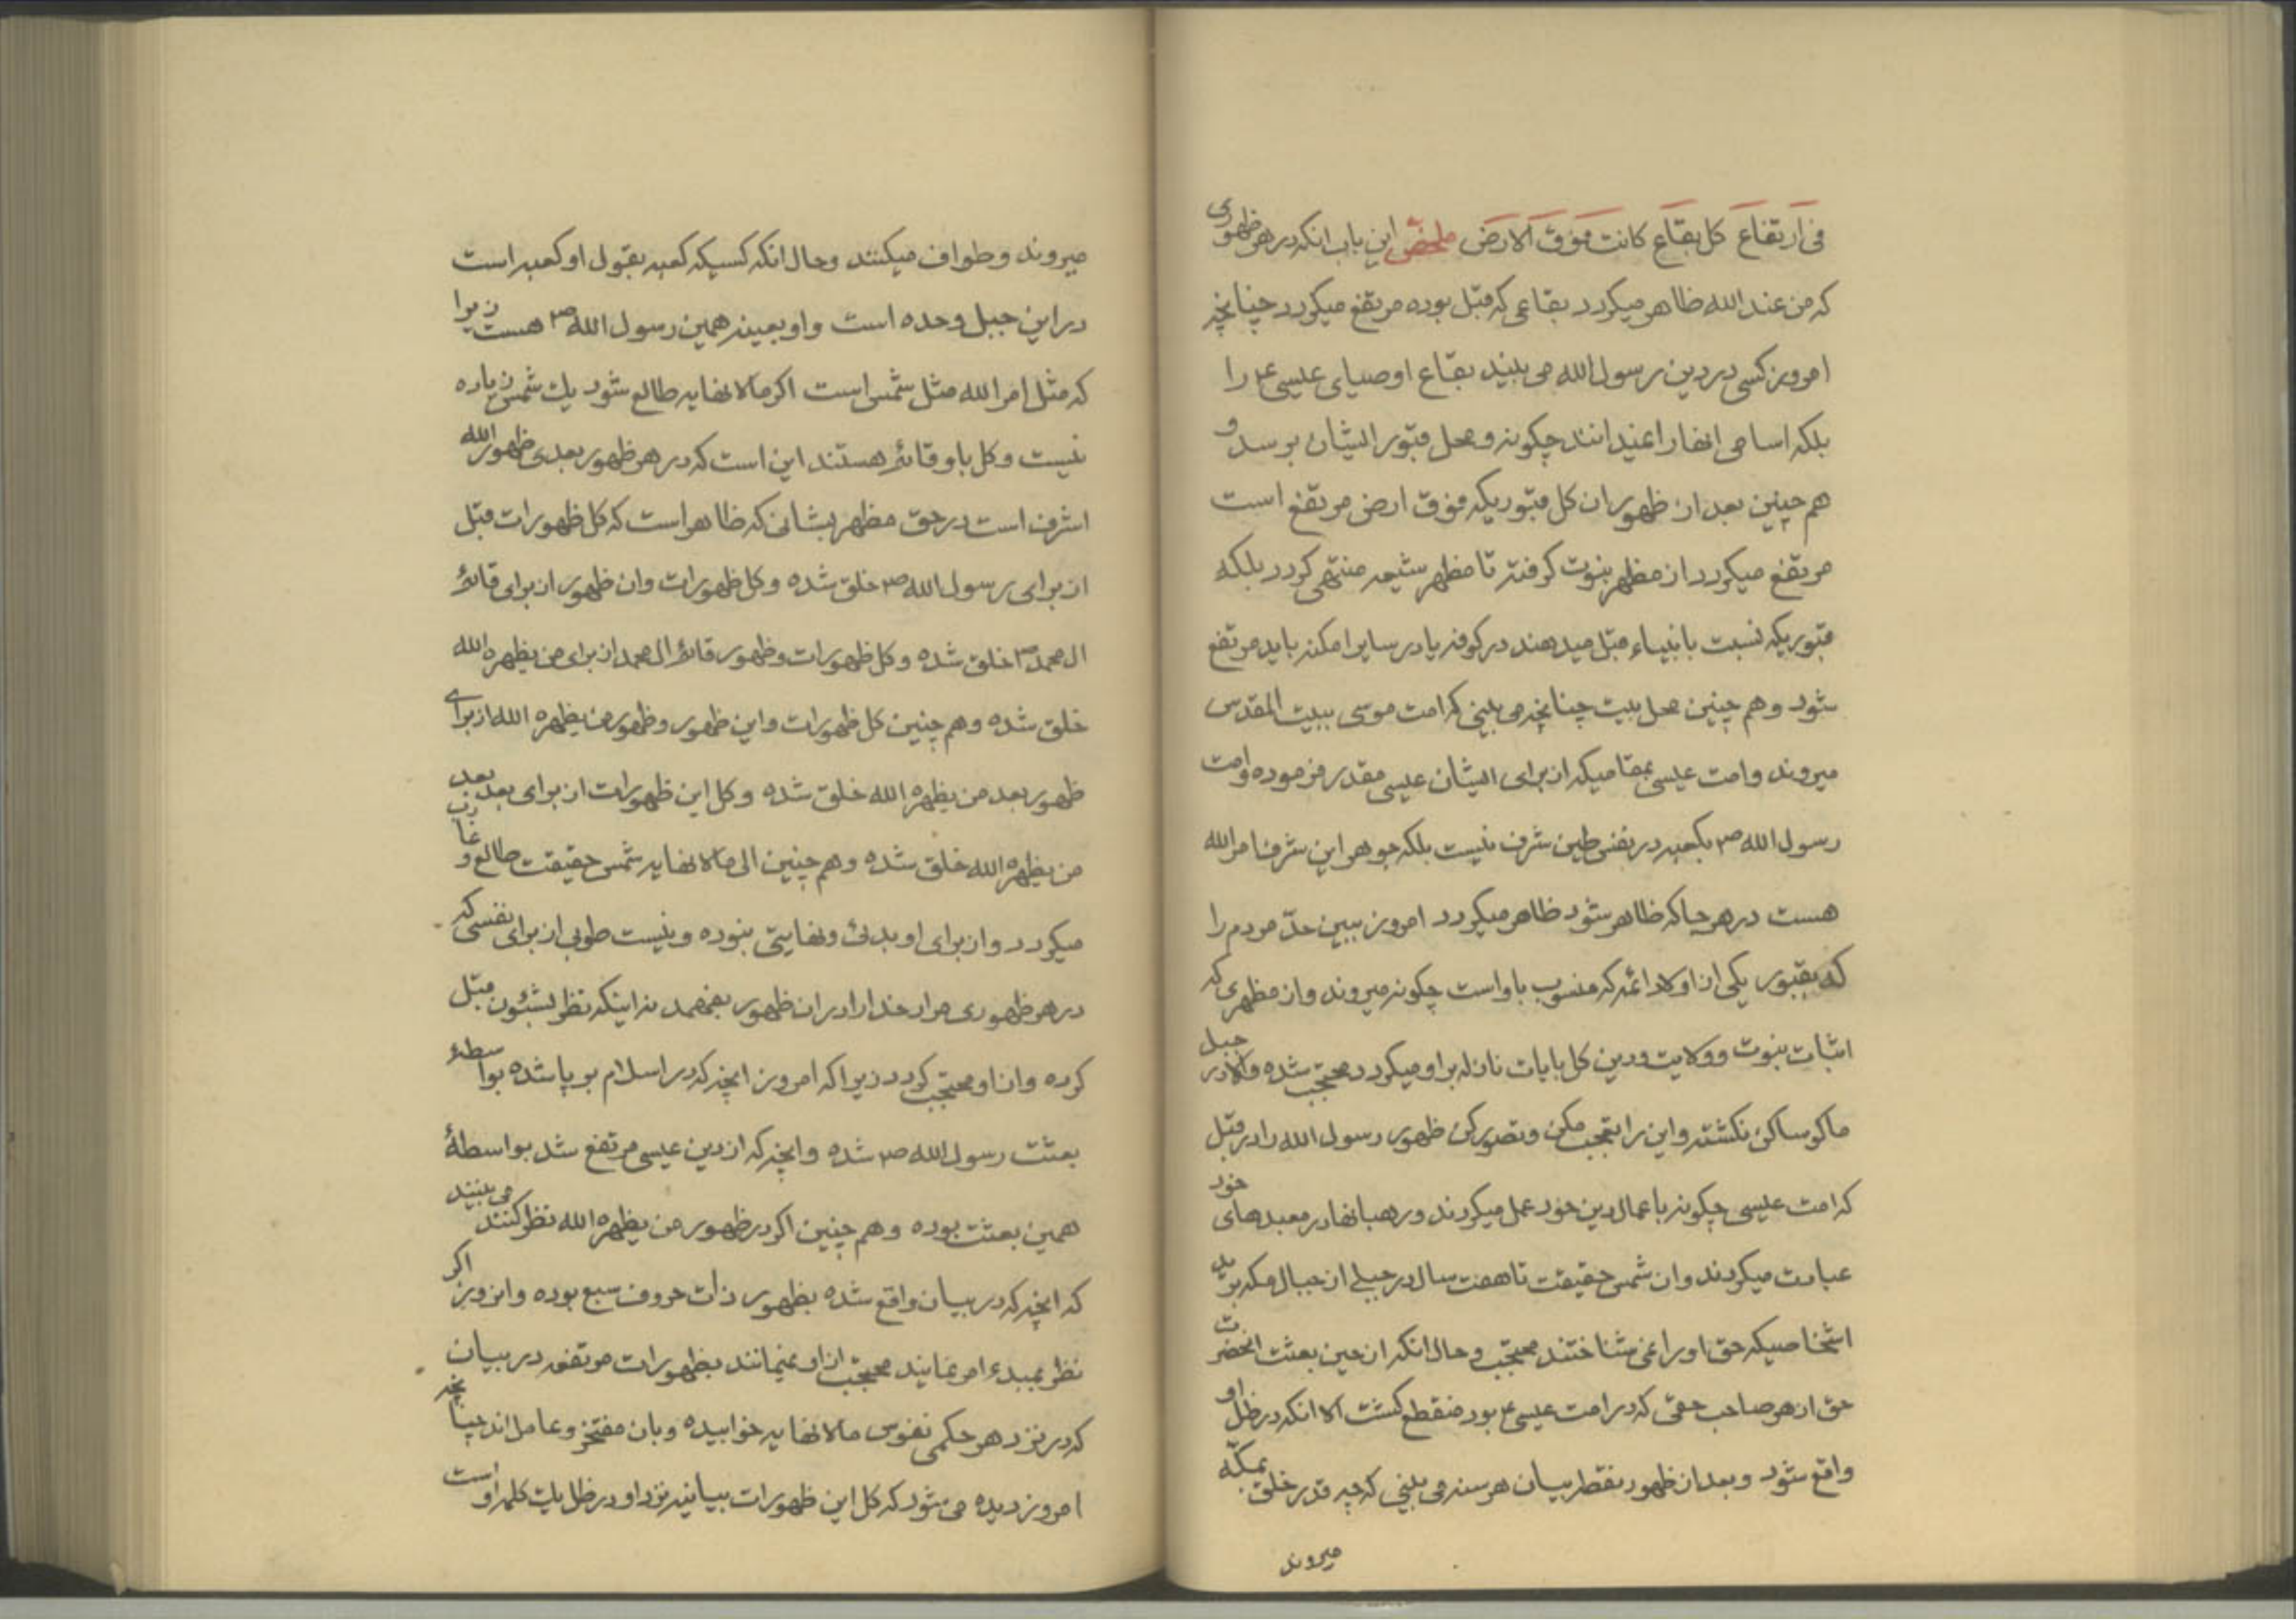 فی ارتفاع کل بقاع کانت فوق الارض ملخص این باب انکه در هر ظهوری
که من عند الله ظاهر میکردد بقاعی که قبل بوده مرتفع میکردد چنانچه
امروز کسی در دین رسول الله می بیند بقاع اوصیای عیسی ع را
بلکه اسامی انها را نمیدانند چکونه و محل قبور ایشان برسد و
هم چنین بعد از ظهور ان کل قبوریکه فوق ارض مرتفع است
مرتفع میکردد از مظهر نبوت کرفته تا مظهر شیعه منتهی کردد بلکه
قبوریکه نسبت بانبیاء قبل میدهند در کوفه یا در سایر امکنه باید مرتفع
شود و هم چنین محل بیت چنانچه می بینی که امت موسی ببیت المقدس
میروند و امت عیسی بمقامیکه از برای ایشان عیسی مقدر فرموده و امت
رسول الله ص بکعبه در نفس طین شرف نیست بلکه جوهر این شرف امر الله
هست در هر جا که ظاهر شود ظاهر میکردد امروز ببین حدّ مردم را
که بقبور یکی از اولاد ائمه که منسوب باو است چکونه میروند و ان مظهری که
اثبات نبوت و ولایت و دین کل بایات نازله بر او میکردد محتجب شده و الا در جبل
ماکو ساکن نکشته و این را تعجب مکن و تصور کن ظهور رسول الله را در قبل
که امت عیسی چکونه باعمال دین خود عمل میکردند و رهبانها در معبدهای خود
عبادت میکردند و ان شمس حقیقت تا هفت سال در جبلی از جبال مکه بود
اشخاصیکه حق او را نمی شناختند محتجب و حال انکه از حین بعثت انحضرت
حق از هر صاحب حقی که در امت عیسی ع بود منقطع کشت الا انکه در ظل او
واقع شود و بعد از ظهور نقطه بیان هر سنه می بینی که چه قدر خلق بمکّه
میروند
میروند و طواف میکنند و حال انکه کسیکه کعبه بقول او کعبه است
در این جبل وحده است و او بعینه همین رسول الله ص هست زیرا
که مثل امر الله مثل شمس است اکر مالانهایه طالع شود یک شمس زیاده
نیست و کل باو قائم هستند این است که در هر ظهور بعدی ظهور الله
اشرف است در حق مظهر بشانی که ظاهر است که کل ظهورات قبل
از برای رسول الله ص خلق شده و کل ظهورات و ان ظهور از برای قائم
ال محمد ص خلق شده و کل ظهورات و ظهور قائم ال محمد از برای من یظهره الله
خلق شده و هم چنین کل ظهورات و این ظهور و ظهور من یظهره الله از برای
ظهور بعد من یظهره الله خلق شده و کل این ظهورات از برای بعد بعد
من یظهره الله خلق شده و هم چنین الی مالانهایه شمس حقیقت طالع و غارب
میکردد و از برای او بدئی و نهایتی نبوده و نیست طوبی از برای نفسی که
در هر ظهوری مراد خدا را در ان ظهور بفهمد نه اینکه نظر بشئون قبل
کرده و از او محتجب کردد زیرا که امروز انچه که در اسلام بر پا شده بواسطهٔ
بعثت رسول الله ص شده و انچه که از دین عیسی مرتفع شد بواسطهٔ
همین بعثت بوده و هم چنین اکر در ظهور من یظهره الله نظر کنند می بینند
که انچه که در بیان واقع شده بظهور ذات حروف سبع بوده و انروز اکر
نظر بمبدء امر نمایند محتجب از او نمیمانند بظهورات مرتفعه در بیان
که در نزد هر حکمی نفوس مالانهایه خوابیده و بان مفتخر و عامل اند چنانچه
امروز دیده می شود که کل این ظهورات بیانیه نزد او در ظل یک کلمه او است